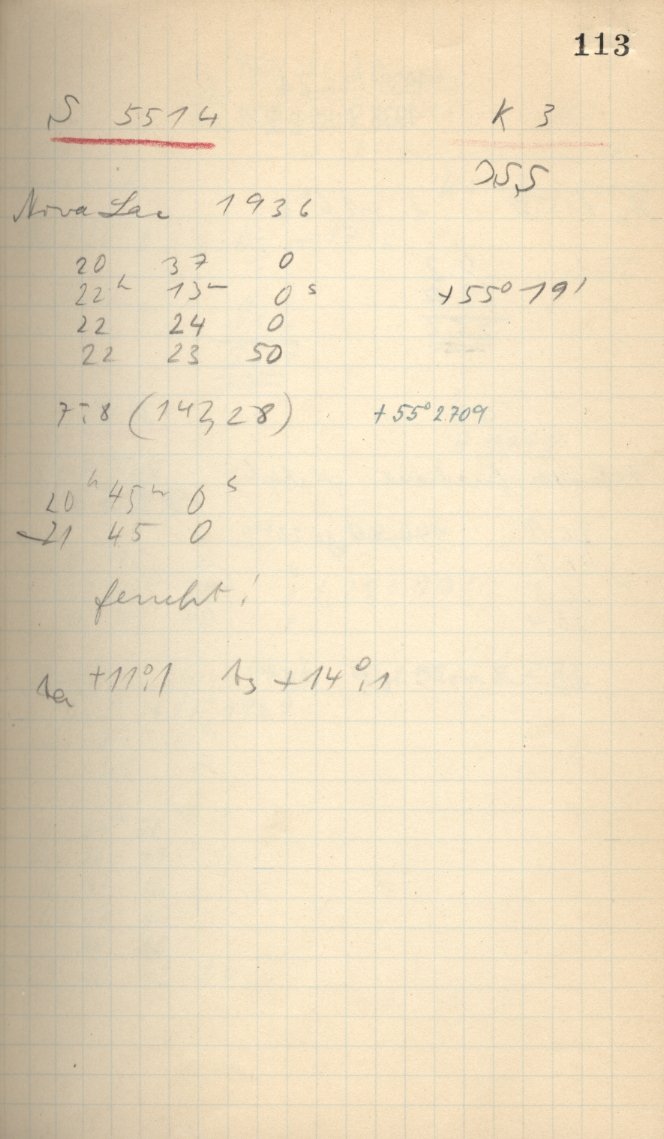 113
S 5514 K 3
Nova Lac 1936
20 37 0
22h 13m 0s +55° 19'
22 24 0
22 23 50
7:8 (147,28) +55°2709
20h 45m 0s
21 45 0
feucht!
ta +11°,1 +14°,1